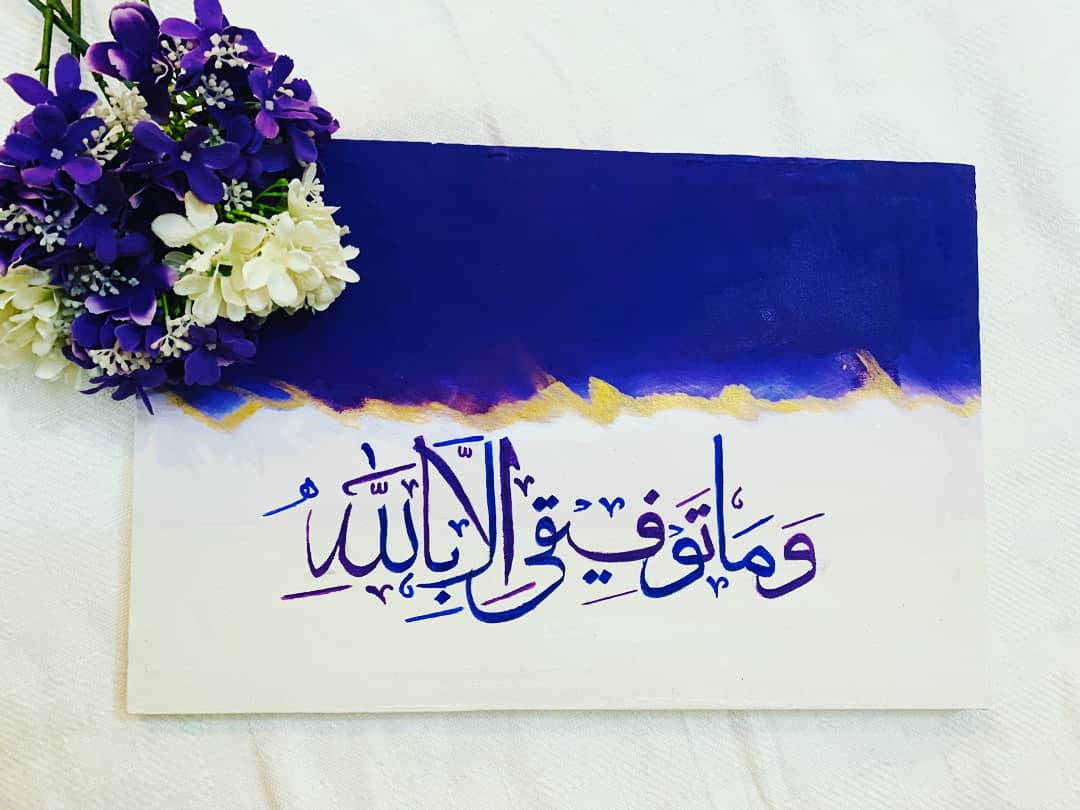 وَمَا تَوْفِيقِى إِلَّا بِاللَّهِ